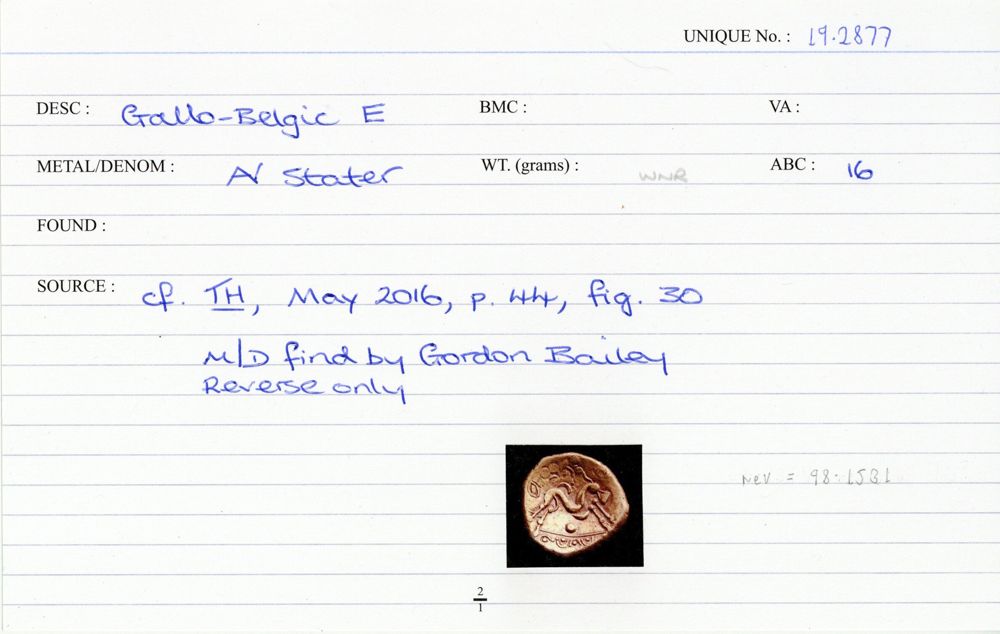 UNIQUE No. : 19.2877
DESC : Gallo-Belgic E BMC : VA :
METAL/DENOM : AV Stater WT. (grams) : WNR ABC : 16
FOUND :
SOURCE : cf. TH, May 2016, p. 44, fig. 30
M/D find by Gordon Bailey
Reverse only
rev = 98.1531
2
1